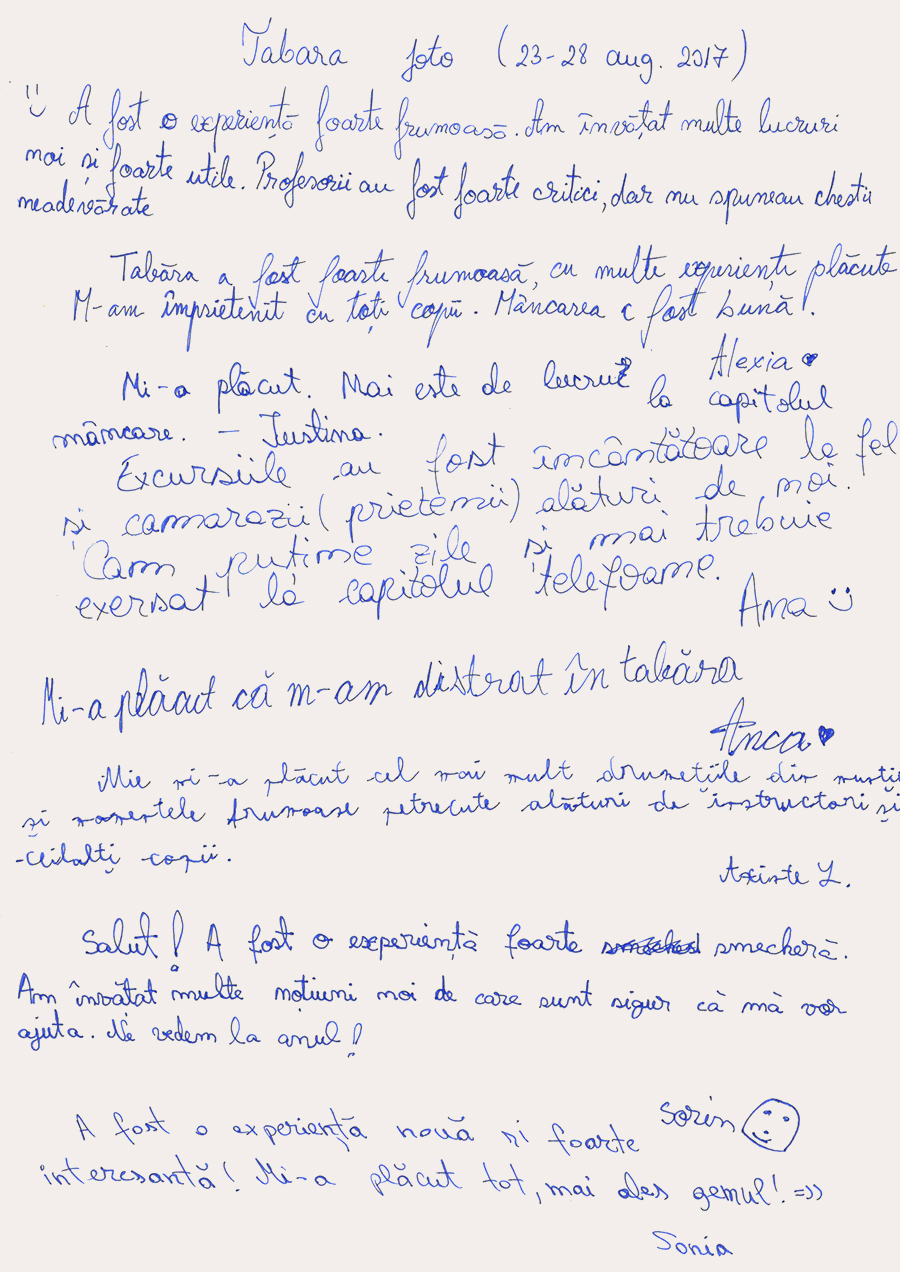 Tabara foto (23-28 aug. 2017)
A fost o experiență foarte frumoasă. Am învățat multe lucruri
noi și foarte utile. Profesorii au fost foarte critici, dar nu spuneau chestii
neadevărate
Tabăra a fost foarte frumoasă, cu multe experiențe plăcute
M-am împrietenit cu toți copii. Mâncarea a fost bună!.
Alexia
Mi-a plăcut. Mai este de lucrut la capitolul
mâncare. - Iustina.
Excursiile au fost încântătoare la fel
și camarazii (prietenii) alături de noi.
Cam puține zile și mai trebuie
exersat la capitolul telefoane.
Ana :)
Mi-a plăcut că m-am distrat în tabăra
Anca
Mie mi-a plăcut cel mai mult drumețiile din munții
și momentele frumoase petrecute alături de instructori și
ceilalți copii.
Axinte Y.
Salut! A fost o experiență foarte smecheră.
Am învățat multe noțiuni noi de care sunt sigur că mă vor
ajuta. Ne vedem la anul!
Sorin
A fost o experiență nouă și foarte
interesantă! Mi-a plăcut tot, mai ales gemul! =))
Sonia